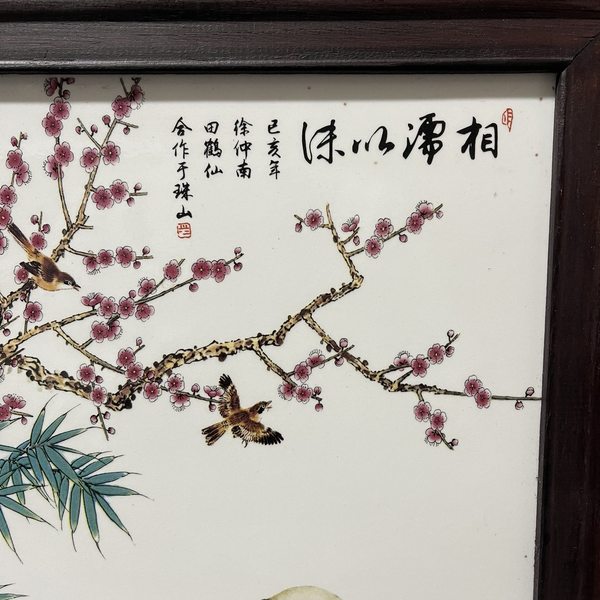 相濡以沫
己亥年
徐仲南
田鶴仙
合作于珠山